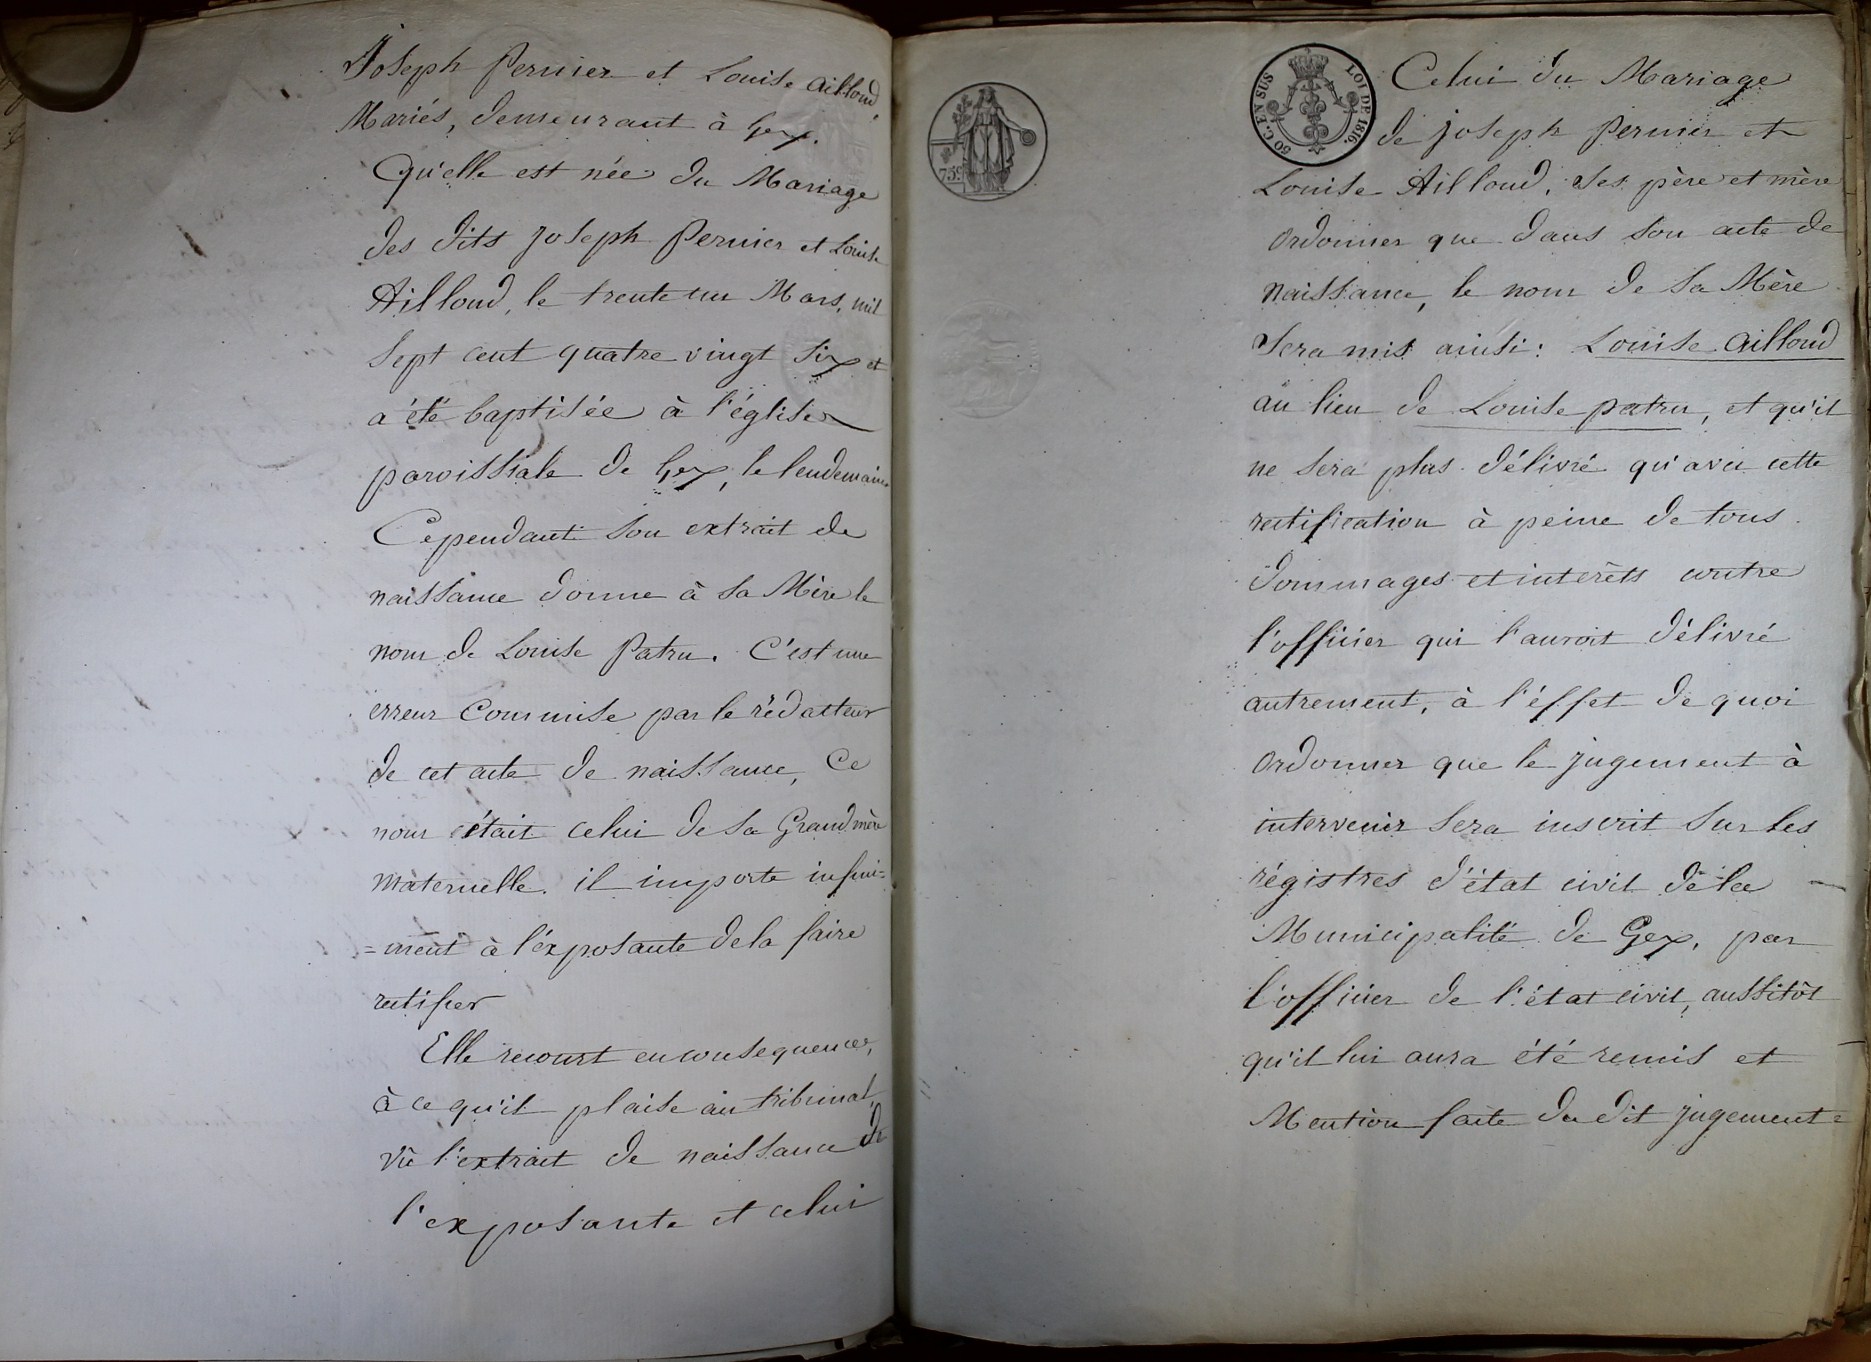 Joseph Pernier et Louise Ailloud,
Mariés, demeurant à Gex.
Qu'elle est née du Mariage
des dits Joseph Pernier et Louise
Ailloud, le trente un Mars, mil
sept cent quatre vingt six et
a été baptisée à l'église
paroissiale de Gex, le lendemain
Cependant son extrait de
naissance donne à sa Mère le
nom de Louise Patru. C'est une
erreur Commise par le rédacteur
de cet acte de naissance, Ce
nom était celui de sa Grand mère
Maternelle. il importe infini=
=ment à l'éxposante de la faire
rectifier
Elle recourt en consequence,
à ce qu'il plaise au tribunal,
Vû l'extrait de naissance de
l'exposante et celui
759
50 C. EN SUS
LOI DE 1816.
Celui du Mariage
de joseph Pernier et
Louise Ailloud, ses père et mère
Ordonner que dans son acte de
Naissance, le nom de sa Mère
Sera mis ainsi : Louise Ailloud
au lieu de Louise patru, et qu'il
ne sera plus délivré qu'avec cette
rectification à peine de tous
dommages et interêts contre
l'officier qui l'auroit délivré
autrement, à l'éffet de quoi
Ordonner que le jugement à
intervenir sera inscrit sur les
régistres d'état civil de la
Municipalité de Gex, par
l'officier de l'état civil, aussitôt
qu'il lui aura été remis et
Mention faite du dit jugement=